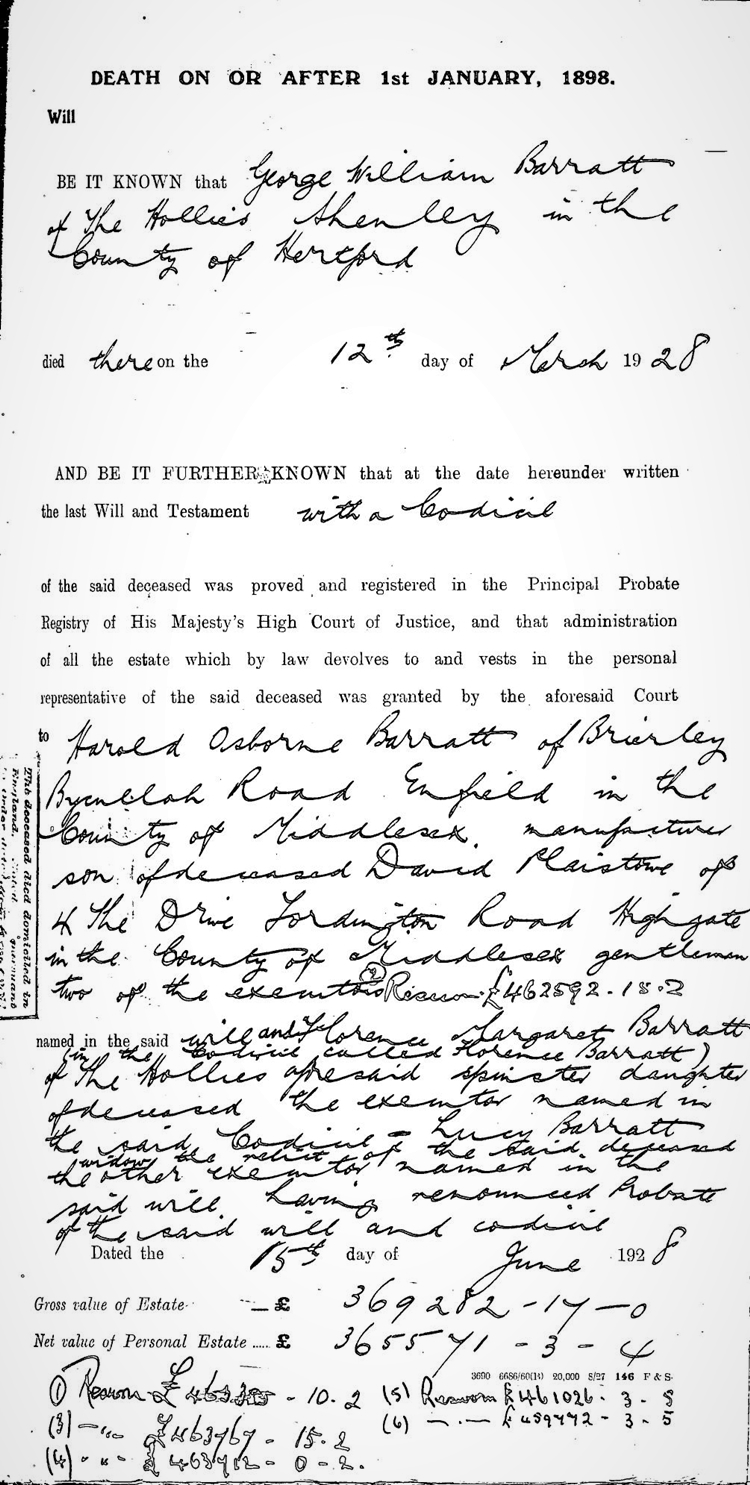 DEATH ON OR AFTER 1st JANUARY, 1898.
Will
BE IT KNOWN that George William Barratt
of The Hollies Shenley in the
County of Hertford
died there on the 12th day of March 1928
AND BE IT FURTHER KNOWN that at the date hereunder written
the last Will and Testament with a Codicil
of the said deceased was proved and registered in the Principal Probate
Registry of His Majesty's High Court of Justice, and that administration
of all the estate which by law devolves to and vests in the personal
representative of the said deceased was granted by the aforesaid Court
to Harold Osborne Barratt of Brierley
Bycullah Road Enfield in the
County of Middlesex manufacturer
son of deceased David Plaistowe of
4 The Drive Fordington Road Highgate
in the County of Middlesex gentleman
two of the executors (2) Resworn £462592-18-2
named in the said will and Florence Margaret Barratt
(in the Codicil called Florence Barratt)
of The Hollies aforesaid spinster daughter
of deceased the executor named in
the said Codicil - Lucy Barratt
widow the relict of the said deceased
the other executor named in the
said will having renounced Probate
of the said will and codicil
Dated the 15th day of June 1928
Gross value of Estate £ 369282-17-0
Net value of Personal Estate ..... £ 365571-3-4
3690 6686/60(14) 20,000 8/27 146 F & S
(1) Resworn £ -10.2 (5) Resworn £461026-3-8
(3) £463767-15.2 (6) £459772-3-5
(4) £463712-0-2.
The deceased died domiciled in
England